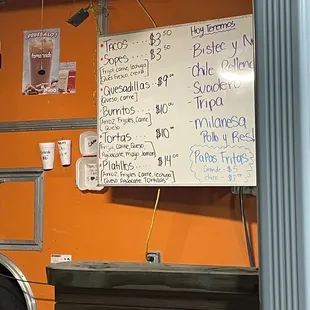 Tacos .... $3.50
Sopes .... $3.50
Frijol, carne, lechuga
Queso Fresco, crema
Quesadillas $9.00
Queso, carne
Burritos .... $10.00
Arroz, Frijoles, Carne,
Queso
Tortas .... $10
Frijol, Carne, Queso
Aguacate, mayo, Jamon
Platillos .... $14.00
Arroz, Frijoles Carne, lechuga
Queso Aguacate Tortillas
Hoy Tenemos
Bistec y
Chile Relleno
Suadero
- Tripa
- milanesa
Pollo y Res
Papas Fritas
Grande $5
chica $3